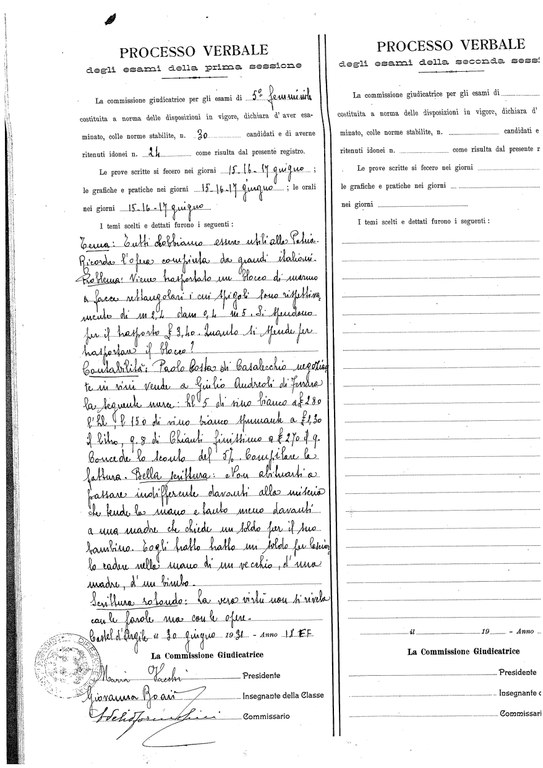 PROCESSO VERBALE
degli esami della prima sessione
La commissione giudicatrice per gli esami di 5ª femminile
costituita a norma delle disposizioni in vigore, dichiara d'aver esa-
minato, colle norme stabilite, n. 30 candidati e di averne
ritenuti idonei n. 24 come risulta dal presente registro.
Le prove scritte si fecero nei giorni 15-16-17 giugno ;
le grafiche e pratiche nei giorni 15-16-17 giugno ; le orali
nei giorni 15-16-17 giugno
I temi scelti e dettati furono i seguenti :
Tema: Tutti dobbiamo essere utili alla Patria.
Ricorda l'opera compiuta da grandi italiani.
Problema: Viene trasportato un blocco di marmo
a facce rettangolari i cui spigoli sono rispettiva
mente di m 2,4 dam 0,4 m 5. Si spendono
per il trasporto £ 3,40. Quanto si spende per
trasportare il blocco?
Contabilità: Paolo Costa di Casalecchio negozian
te in vini vende a Giulio Andreoli di
la seguente merce: hl 5 di vino bianco a £ 280
l'hl, l 150 di vino bianco spumante a £ 1,30
il litro, q. 8 di Chianti finissimo a £ 270 il q.
Concede lo sconto del 5%. Compilare la
fattura. Bella scrittura: Non abituarti a
passare indifferente davanti alla miseria
che tende la mano e tanto meno davanti
a una madre che chiede un soldo per il suo
bambino. Togli tratto tratto un soldo per lasciar
lo cadere nella mano di un vecchio, d'una
madre, d'un bimbo.
Scrittura rotondo: La vera virtù non si rivela
con le parole ma con le opere.
Castel d'Argile li 30 giugno 1931 - Anno IX EF.
La Commissione Giudicatrice
Maria Presidente
Giovanna Boari Insegnante della Classe
Commissario
PROCESSO VERBALE
degli esami della seconda sessi
La commissione giudicatrice per gli esami di
costituita a norma delle disposizioni in vigore, dichiara d'
minato, colle norme stabilite, n. candidati e
ritenuti idonei n. come risulta dal presente r
Le prove scritte si fecero nei giorni
le grafiche e pratiche nei giorni
nei giorni
I temi scelti e dettati furono i seguenti :
il 19 - Anno
La Commissione Giudicatrice
Presidente
Insegnante
Commissari